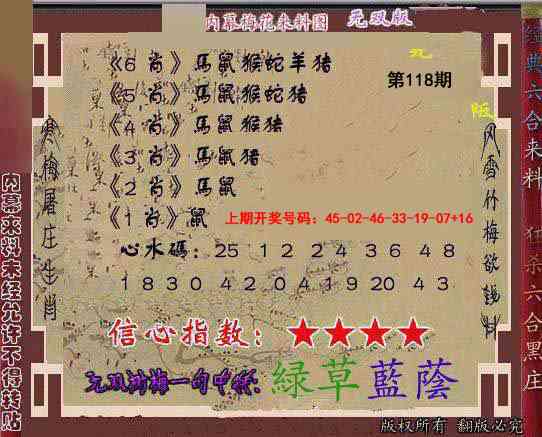 内幕梅花来料图 无双版
《6 肖》馬鼠猴蛇羊猪
第118期
《5 肖》馬鼠猴蛇猪
《4 肖》馬鼠猴猪
《3 肖》馬鼠猪
《2 肖》馬鼠
《1 肖》鼠
上期开奖号码：45-02-46-33-19-07+16
心水碼：25 12 24 36 48
18 30 42 04 19 20 43
信心指数：★★★★
中特：綠草藍蔭
寒梅屠庄生肖
风雪竹梅欲
内幕来料未经允许不得转贴
经典六合来料 狂杀六合黑庄
版权所有 翻版必究